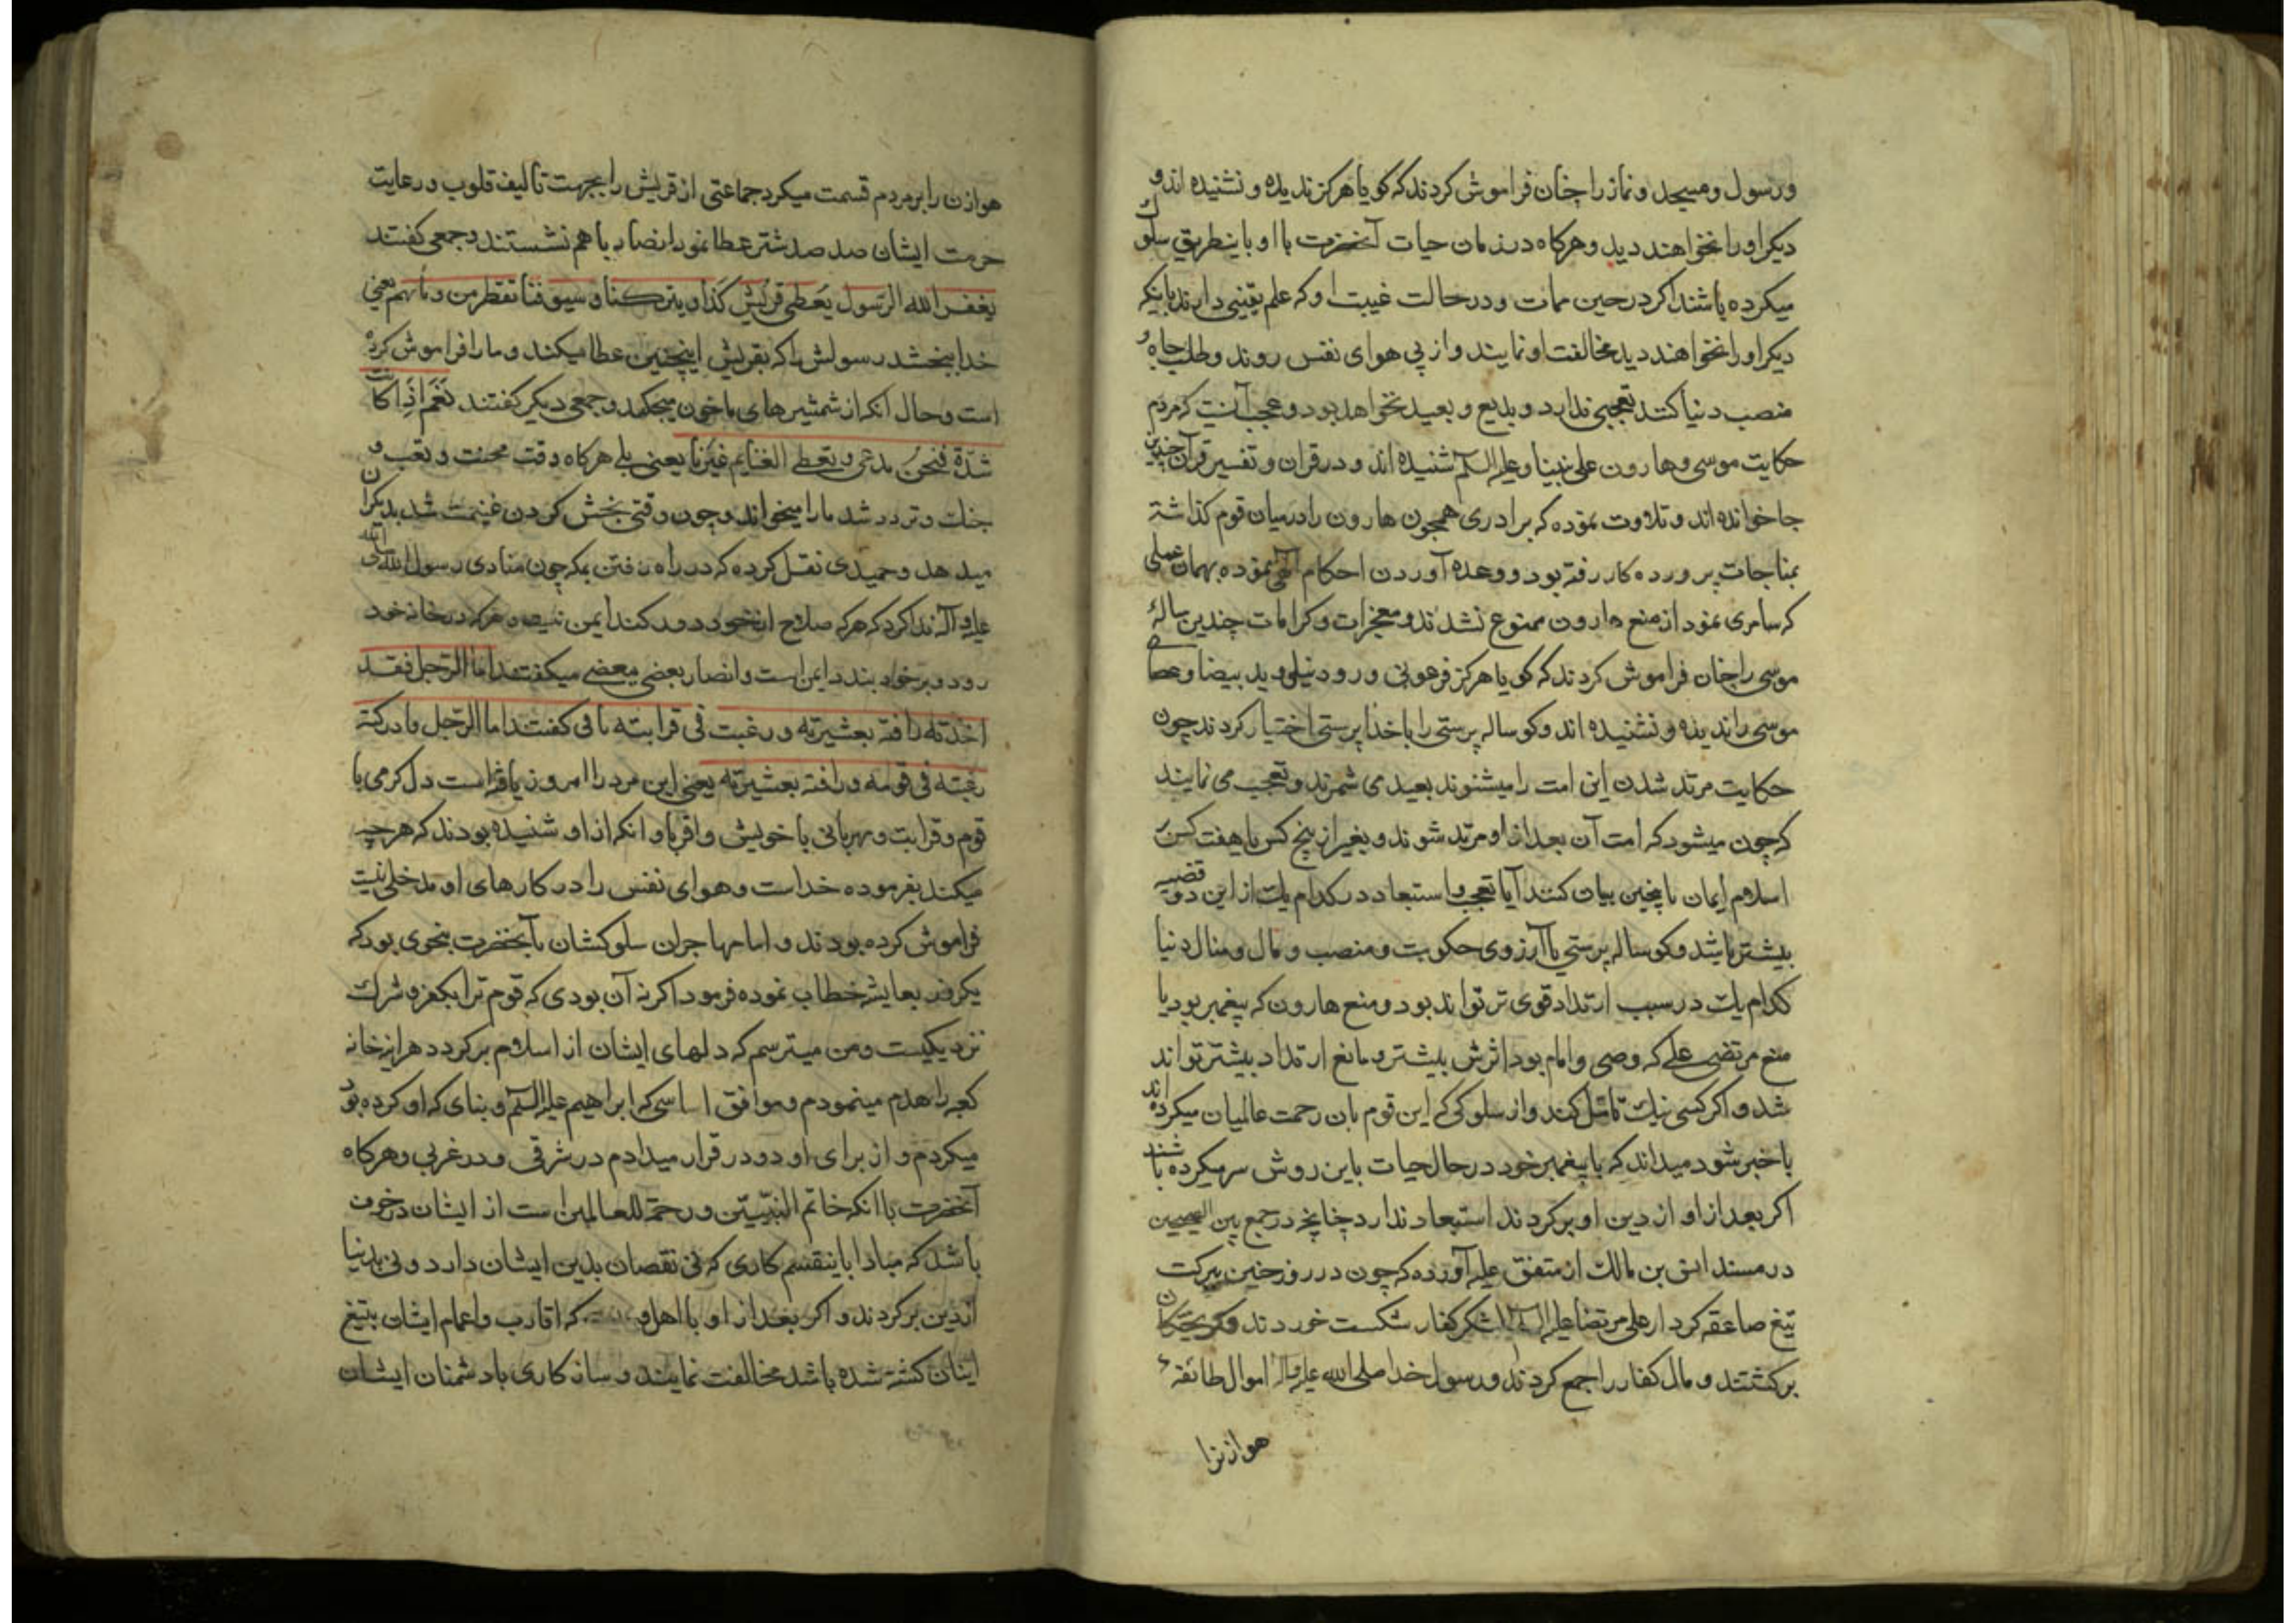 ورسول ومسجد ونماز را چنان فراموش کردند که کویا هرکز ندیده و نشنیده اند و
دیکر او را نخواهند دید وهرکاه در زمان حیات آنحضرت با او باینطریق سلوک
میکرده باشند اکر در حین ممات ودر حالت غیبت او که علم یقینی دارند باینکه
دیکر او را نخواهند دید مخالفت او نمایند واز پی هوای نفس روند وطلب جاه و
منصب دنیا کنند تعجبی ندارد و بدیع و بعید نخواهد بود و عجب آنست که مردم
حکایت موسی وهارون علی نبینا وعلیه السلم شنیده اند و در قران و تفسیر قرآن چندین
جا خوانده اند و تلاوت نموده که برادری همچون هارون را درمیان قوم کذاشته
بمناجات پرورده کار رفته بود و وعده آوردن احکام الهی نموده بهمان عملی
که سامری نمود از منع هارون ممنوع نشدند و معجزات وکرامات چندین سالهٔ
موسی را چنان فراموش کردند که کویا هرکز فرعونی و رود نیلی وید بیضا وعصا
موسی را ندیده و نشنیده اند وکوساله پرستی را با خدا پرستی اختیار کردند چون
حکایت مرتد شدن این امت را میشنوند بعید می شمرند و تعجب می نمایند
که چون میشود که امت آن بعد از او مرتد شوند و بغیر از پنج کس یا هفت کس بر
اسلام ایمان بیان کنند آیا تعجب و استبعاد در کدام یک از این دو قضیه
بیشتر باشد وکوساله پرستی یا آرزوی حکومت ومنصب و مال ومنال دنیا
کدام یک در سبب ارتداد قوی تر تواند بود و منع هارون که پیغمبر بود یا
منع مرتضی علی که وصی وامام بود اثرش بیشتر و مانع ارتداد بیشتر تواند
شد و اکر کسی نیک تامل کند واز سلوکی که این قوم بان رحمت عالمیان میکرده اند
با خبر شود میداند که با پیغمبر خود در حال حیات باین روش سر میکرده باشند
اکر بعد از او از دین او برکردند استبعاد ندارد چنانچه در جمع بین الصحیحین
در مسند انس بن مالک از متفق علیه آورده که چون در روز حنین ببرکت
تیغ صاعقه کردار علی مرتضا علیه السلم لشکر کفار شکست خوردند
برکشتند و مال کفار را جمع کردند ورسول خدا صلی الله علیه واله اموال طائفهٔ
هوازنرا
هوازن را بر مردم قسمت میکرد جماعتی از قریش را بجهت تالیف قلوب ورعایت
حرمت ایشان صد صد شتر عطا نمود انصار با هم نشستند و جمعی کفتند
یغفر الله الرسول یعطی قریش کذا و یترکنا و سیوفنا تقطر من دمائهم یعنی
خدا ببخشد رسولش را که بقریش اینچنین عطا میکند و ما را فراموش کرده
است وحال انکه از شمشیرهای ما خون میچکد و جمعی دیکر کفتند نعم اذا کانت
شدة فنحن ندعی ویعطی الغنایم غیرنا یعنی بلی هرکاه وقت محنت و تعب و
جنک و تردد شد ما را میخواند وچون وقتی بخش کردن غنیمت شد بدیکران
میدهد وحمیدی نقل کرده که در راه رفتن بمکه چون منادی رسول الله صلی الله
علیه وآله ندا کرد که هرکه صلاح از خود دور کند ایمن است و هرکه در خانه خود
رود و بر خود بندد ایمن است وانصار بعضی ببعضی میکفتند اما الرجل فقد
اخذته رافة بعشیرته و رغبت فی قرابته کفتند اما الرجل فادرکته
رغبته فی قومه و رافة بعشیرته یعنی این مرد را امروز یافته است دل کرمی با
قوم و قرابت و مهربانی با خویش واقربا و انکه از او شنیده بودند که هر چه
میکند بفرموده خداست وهوای نفس را در کارهای او مدخلی نیست
فراموش کرده بودند و اما مهاجران سلوکشان با آنحضرت بنحوی بود که
یکروز بعایشه خطاب نموده فرمود اکر نه آن بودی که قوم ترا بکفر و شرک
نزدیکیست ومن میترسم که دلهای ایشان از اسلام برکردد هراینه خانه
کعبه را هدم مینمودم وموافق اساسی که ابراهیم علیه السلم وبنای که او کرده بود
میکردم و از برای او دو در قرار میدادم در شرقی و در غربی وهرکاه
آنحضرت با انکه خاتم النبیین ورحمة للعالمین است از ایشان در خوف
باشد که مبادا باینقسم کاری که نی نقصان بدین ایشان دارد و نی بدنیا
از دین برکردند و اکر بعد از او با اهل که اقارب واعمام ایشان بتیغ
اینان کشته شده باشد مخالفت نمایند و ساز کاری با دشمنان ایشان